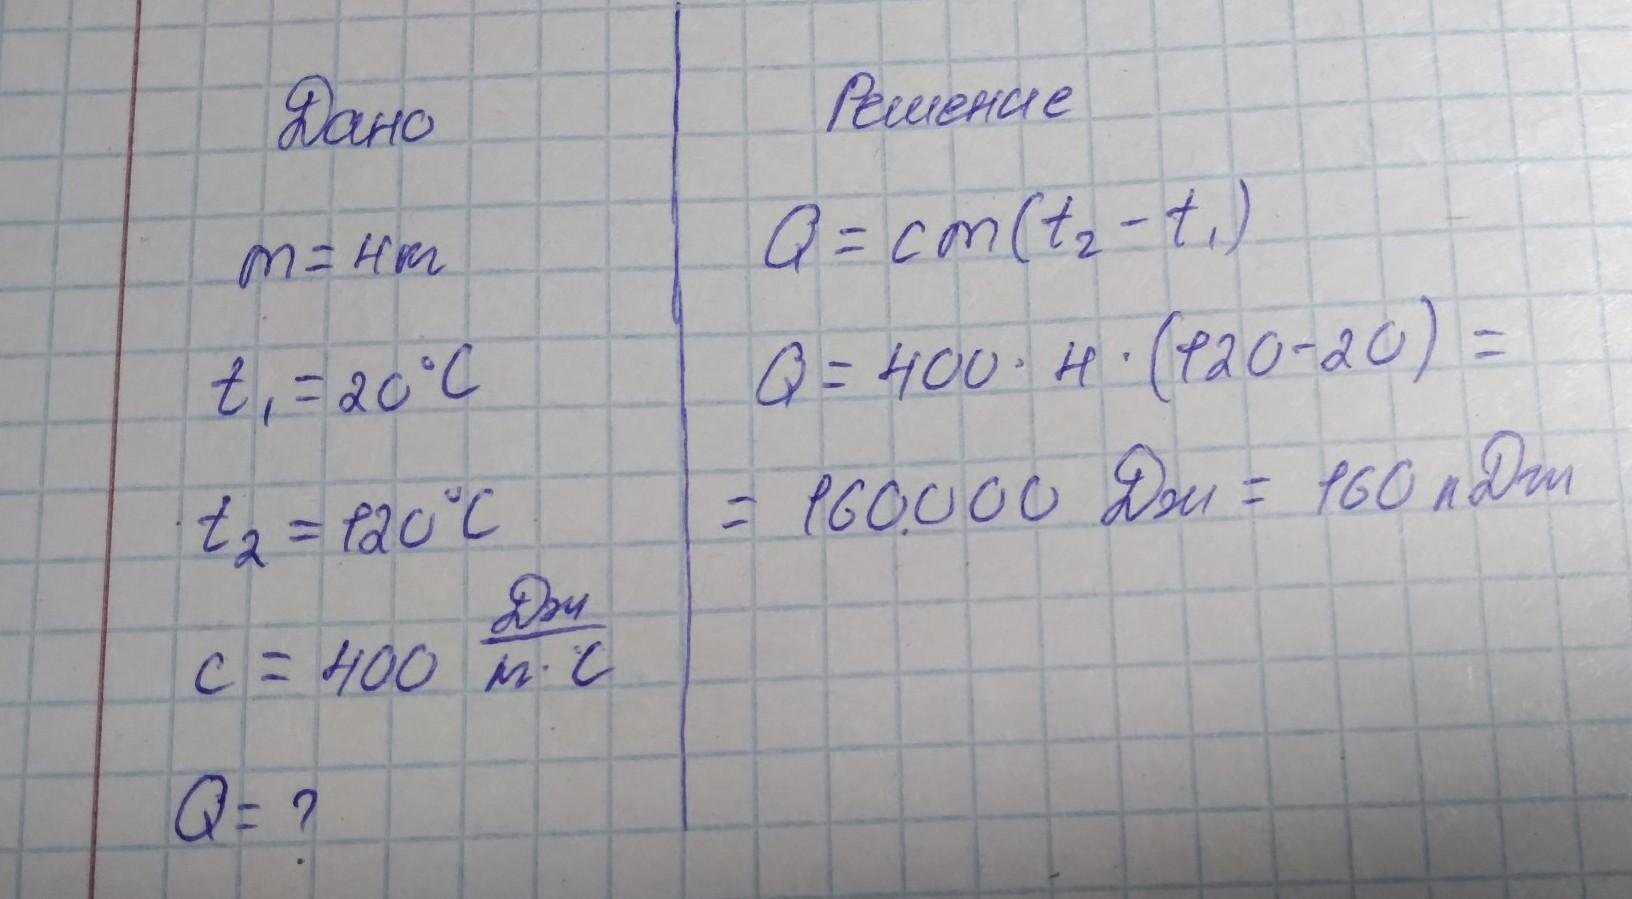 Дано
m = 4кг
t₁ = 20°C
t₂ = 120°C
c = 400 Дж/кг·°C
Q = ?
Решение
Q = cm(t₂ - t₁)
Q = 400 · 4 · (120-20) =
= 160.000 Дж = 160 кДж